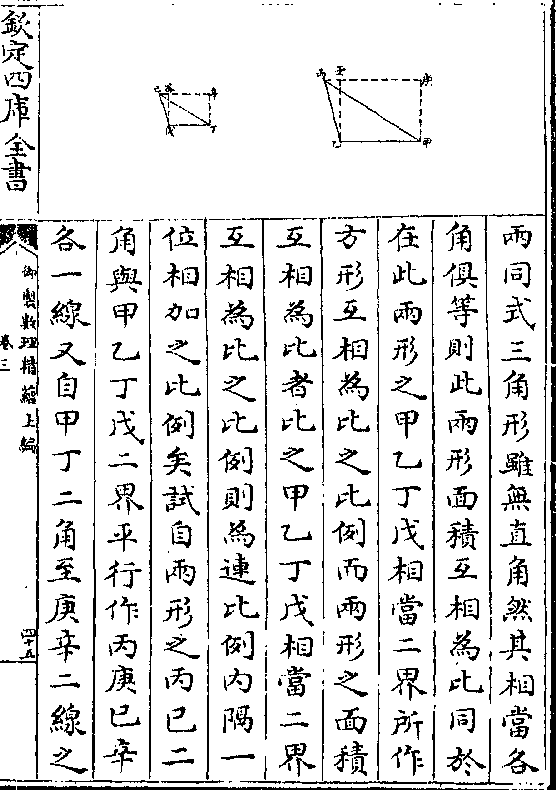 兩同式三角形雖無直角然其相當各
角俱等則此兩形面積互相為比同於
在此兩形之甲乙丁戊相當二界所作
方形互相為比之比例而兩形之面積
互相為比者比之甲乙丁戊相當二界
互相為比之比例則為連比例內隔一
位相加之比例矣試自兩形之丙己二
角與甲乙丁戊二界平行作丙庚己辛
各一線又自甲丁二角至庚辛二線之
欽定四庫全書
御製數理精蘊上編
卷三
四十五
丙 壬 庚
乙 甲
辛
丁